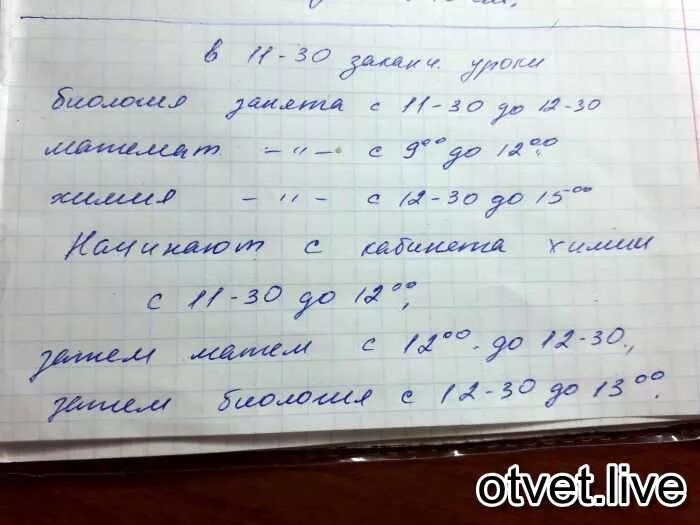 в 11-30 заканч. уроки
биология занята с 11-30 до 12-30
математ -"- с 9⁰⁰ до 12⁰⁰.
химия -"- с 12-30 до 15⁰⁰
Начинают с кабинета химии
с 11-30 до 12⁰⁰,
затем матем с 12⁰⁰. до 12-30,
затем биология с 12-30 до 13⁰⁰.
otvet.live